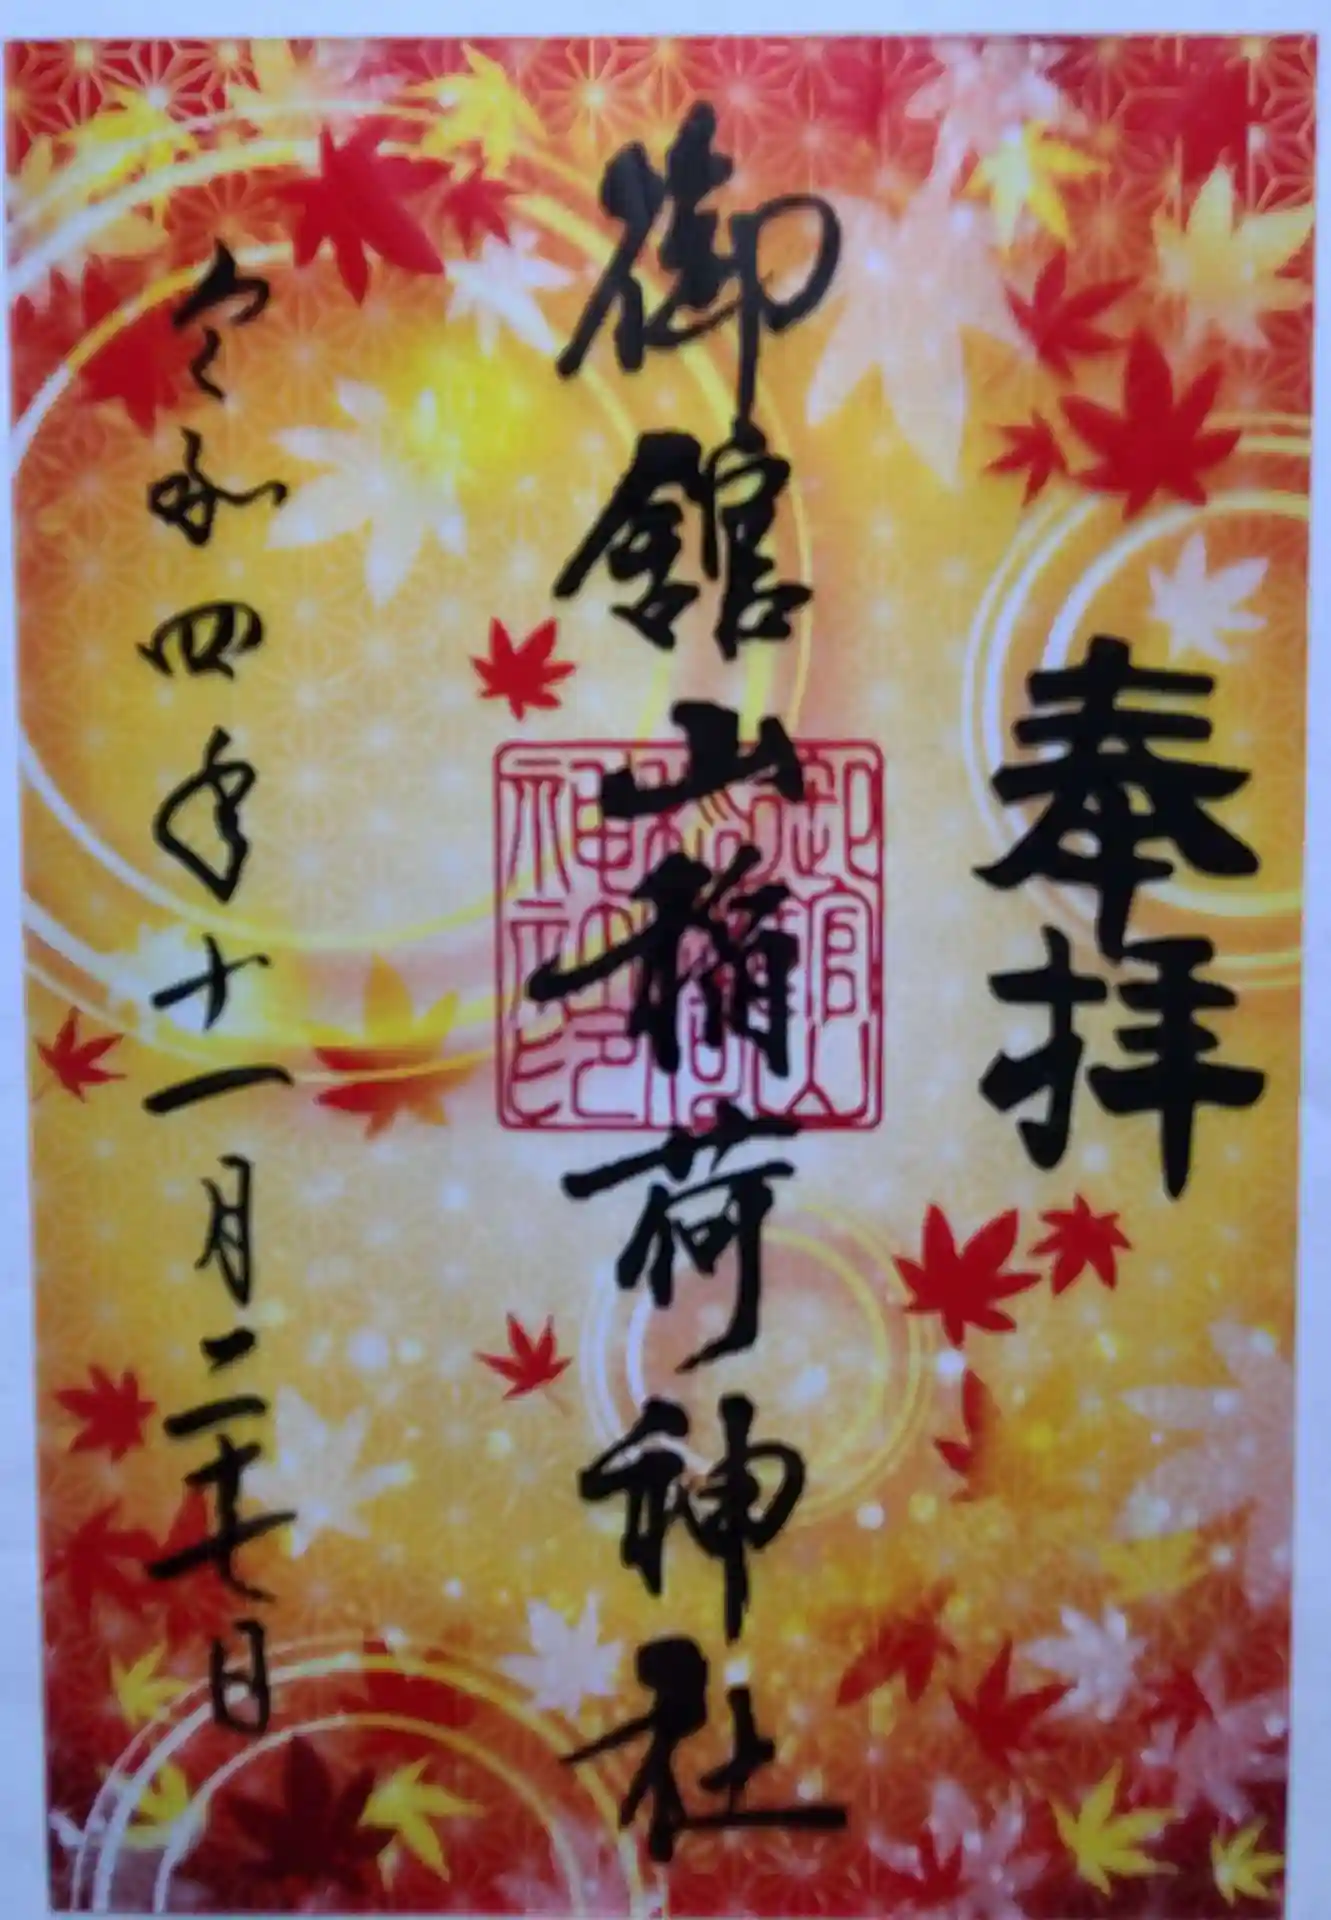 奉拝
御館山稲荷神社
御館山稲荷神社印
令和四年十一月二十七日